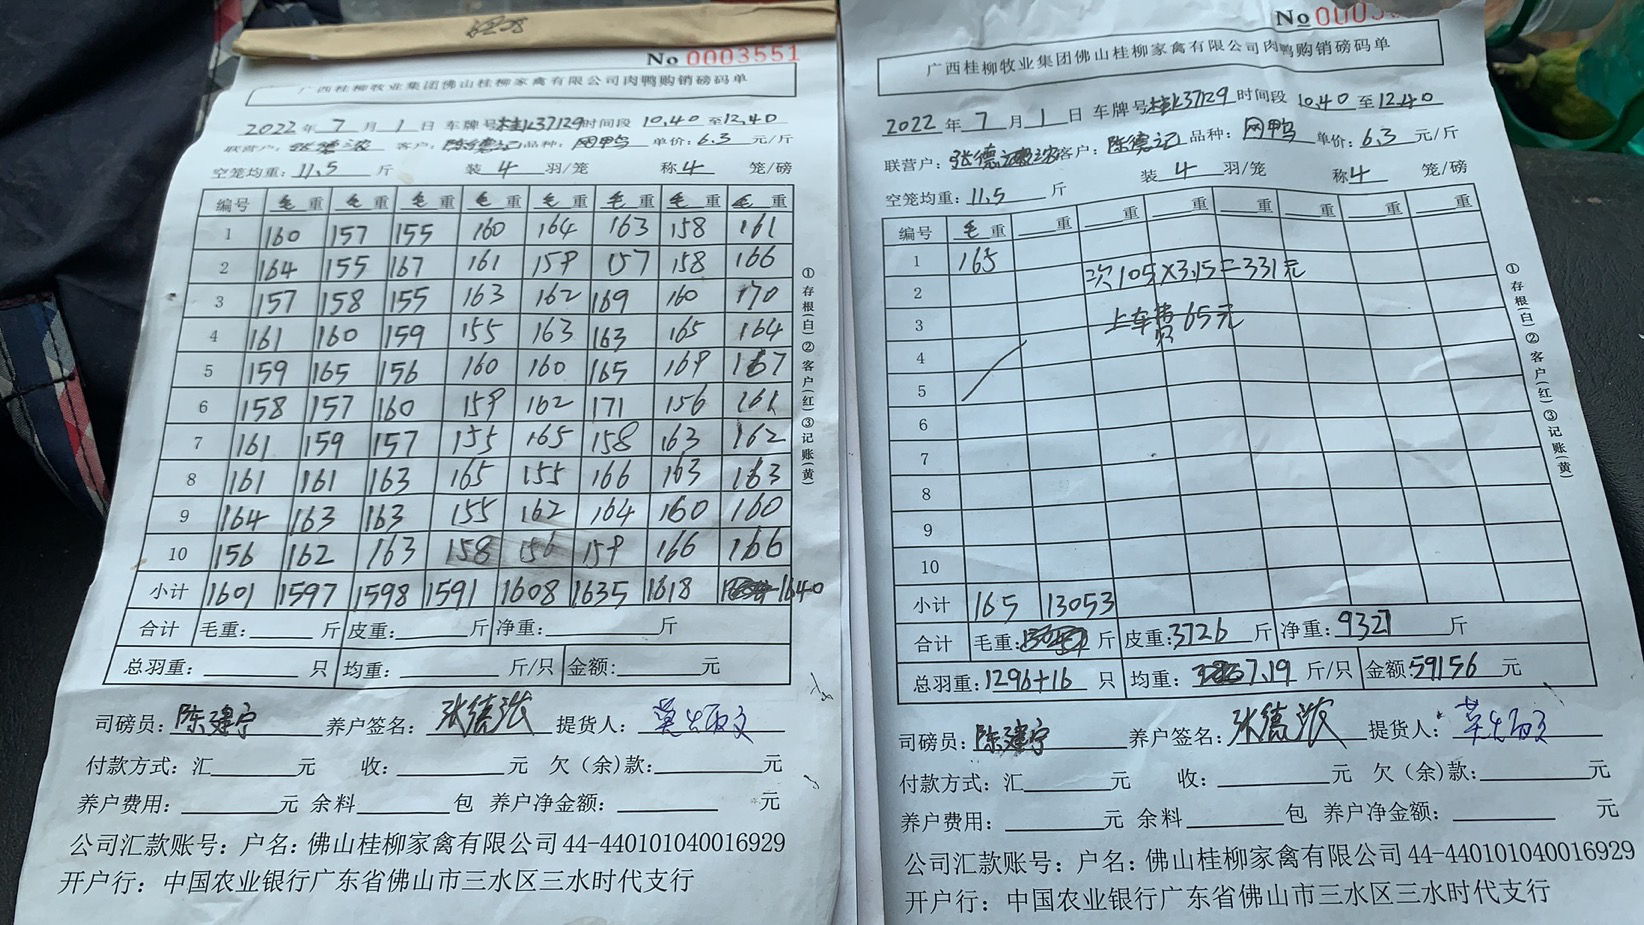 No 0003551
广西桂柳牧业集团佛山桂柳家禽有限公司肉鸭购销磅码单
2022年7月1日 车牌号桂K37129时间段10.40至12.40
联营户：张德浓 客户：陈德记 品种：肉鸭 单价：6.3元/斤
空笼均重：11.5斤 装4羽/笼 称4笼/磅
编号 毛重 毛重 毛重 毛重 毛重 毛重 毛重 毛重
1 160 157 155 160 164 163 158 161
2 164 155 167 161 159 157 158 166
3 157 158 155 163 162 169 160 170
4 161 160 159 155 163 163 165 164
5 159 165 156 160 160 165 169 167
6 158 157 160 159 162 171 156 161
7 161 159 157 155 165 158 163 162
8 161 161 163 165 155 166 163 163
9 164 163 163 155 162 164 160 160
10 156 162 163 158 156 159 166 166
小计 1601 1597 1598 1591 1608 1635 1618 1640
合计 毛重：斤 皮重：斤 净重：斤
总羽重：只 均重：斤/只 金额：元
司磅员：陈建宁 养户签名：张德浓 提货人：
付款方式：汇元 收：元 欠（余）款：元
养户费用：元 余料包 养户净金额：元
公司汇款账号：户名：佛山桂柳家禽有限公司44-440101040016929
开户行：中国农业银行广东省佛山市三水区三水时代支行
①存根(白)②客户(红)③记账(黄)
No
广西桂柳牧业集团佛山桂柳家禽有限公司肉鸭购销磅码单
2022年7月1日 车牌号桂K37129时间段10.40至12.40
联营户：张德浓 客户：陈德记 品种：肉鸭 单价：6.3元/斤
空笼均重：11.5斤 装4羽/笼 称4笼/磅
编号 毛重 重 重 重 重 重 重 重
1 165
2 次105×3.15=331元
3 上车费65元
4
5
6
7
8
9
10
小计 165 13053
合计 毛重：斤 皮重：3726斤 净重：9327斤
总羽重：1296+16只 均重：7.19斤/只 金额：59156元
司磅员：陈建宁 养户签名：张德浓 提货人：
付款方式：汇元 收：元 欠（余）款：元
养户费用：元 余料包 养户净金额：元
公司汇款账号：户名：佛山桂柳家禽有限公司44-440101040016929
开户行：中国农业银行广东省佛山市三水区三水时代支行
①存根(白)②客户(红)③记账(黄)